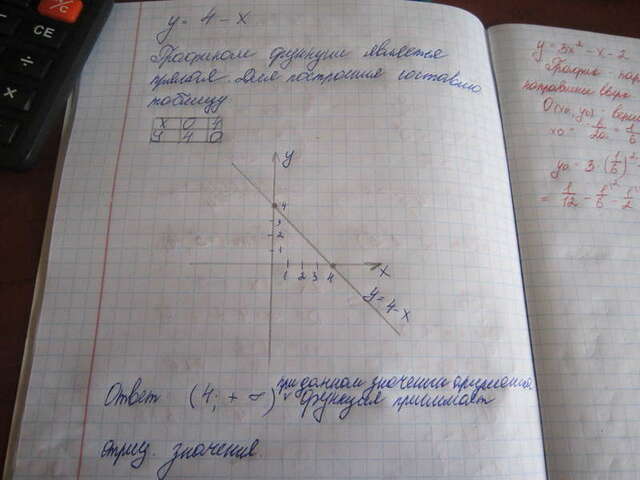 CE
÷
×
y = 4 - x
Графиком функции является
прямая. Для построения составлю
таблицу
x 0 4
y 4 0
y
4
3
2
1
1 2 3 4
x
y = 4 - x
Ответ (4; + ∞) при данном значении аргумента
функция принимает
отриц. значения.
y = 3x² - x - 2
График пар
направлены вверх
O(x₀, y₀) верш
x₀ = 1/2a = 1/6
y₀ = 3·(1/6)²
= 1/12 - 1/6 -